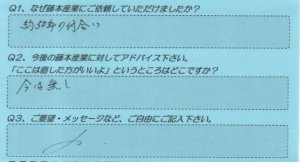 Q1、なぜ藤本産業にご依頼していただけましたか?
約50年の付合い
Q2、今後の藤本産業に対してアドバイス下さい。
「ここは直した方がいいよ」というところはどこですか?
今は無し
Q3、ご要望・メッセージなど、ご自由にご記入下さい。